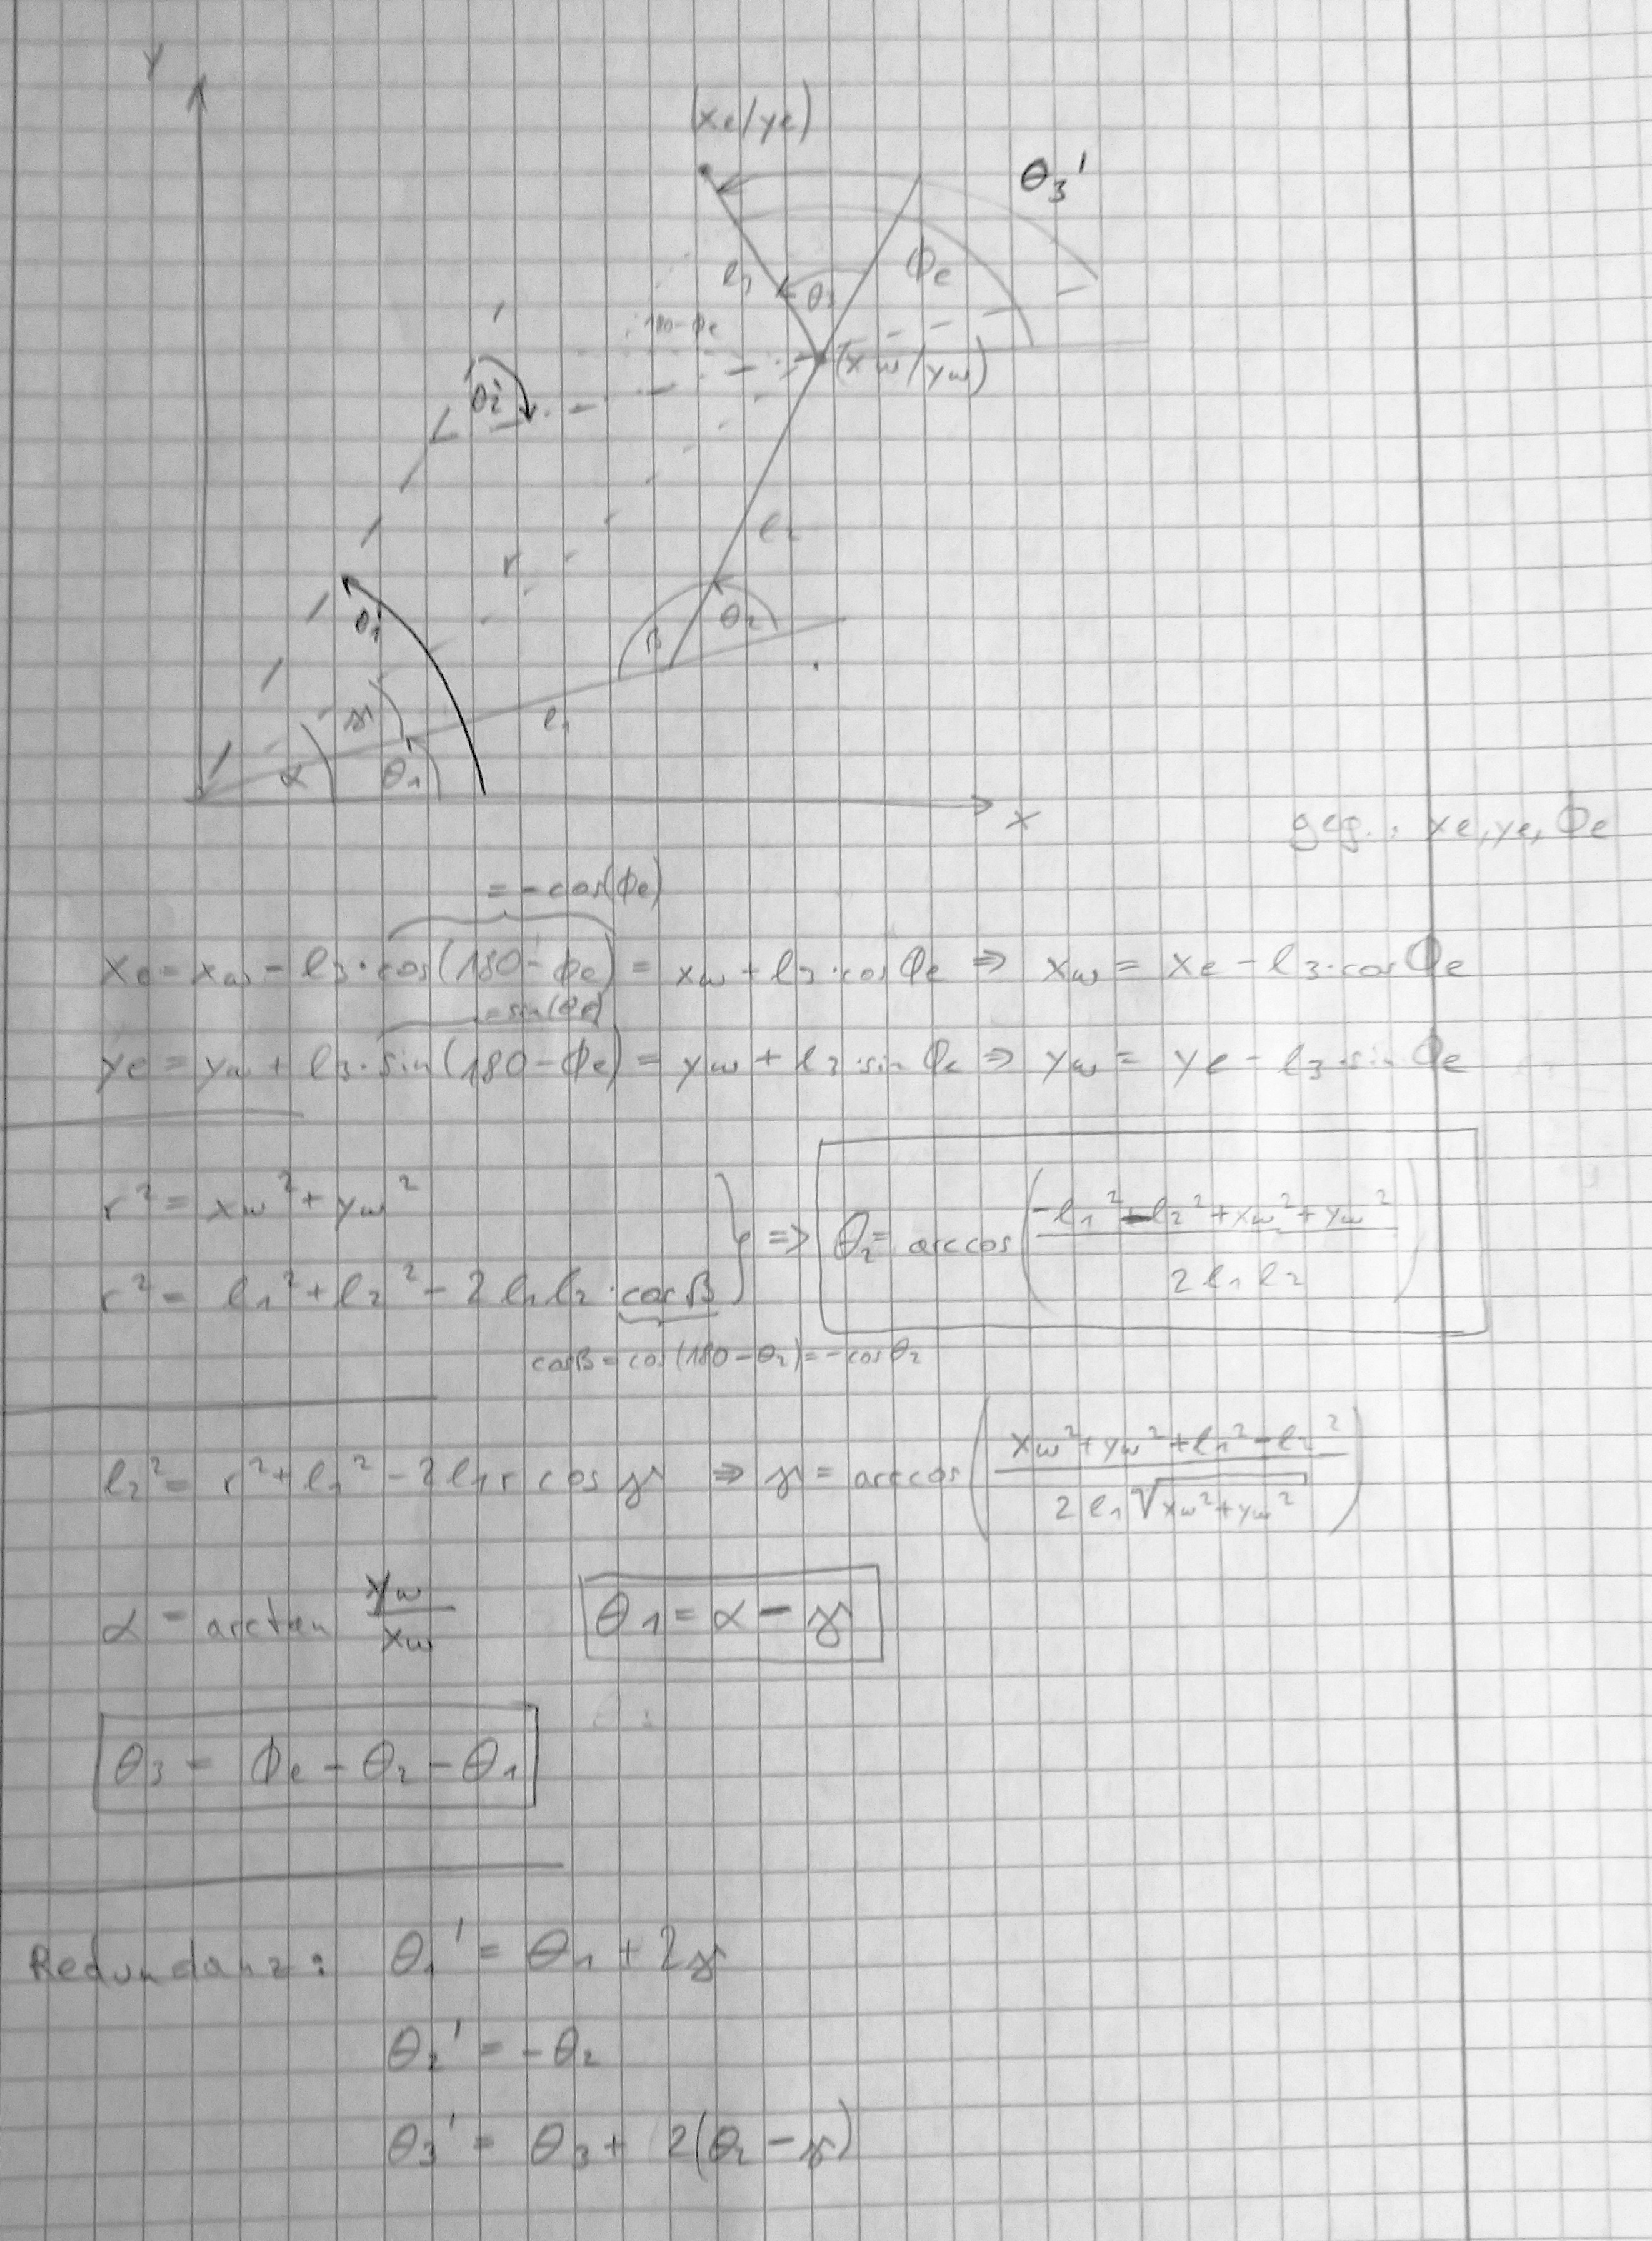 Y
(xe/ye)
θ3'
l3
θ3
Φe
180-Φe
(xw/yw)
θ2'
l2
r
θ1'
β
θ2
γ
l1
α
θ1
x
geg.: xe, ye, Φe
= -cos(Φe)
xe = xw - l3·cos(180-Φe) = xw + l3·cosΦe ⇒ xw = xe - l3·cosΦe
= sin(Φe)
ye = yw + l3·sin(180-Φe) = yw + l3·sinΦe ⇒ yw = ye - l3·sinΦe
r² = xw² + yw²
r² = l1² + l2² - 2l1l2·cosβ
⇒ θ2 = arccos((-l1² - l2² + xw² + yw²)/(2l1l2))
cosβ = cos(180-θ2) = -cosθ2
l2² = r² + l1² - 2l1r cosγ ⇒ γ = arccos((xw² + yw² + l1² - l2²)/(2l1√(xw² + yw²)))
α = arctan yw/xw θ1 = α - γ
θ3 = Φe - θ2 - θ1
Redundanz: θ1' = θ1 + 2γ
θ2' = -θ2
θ3' = θ3 + 2(θ2 - γ)